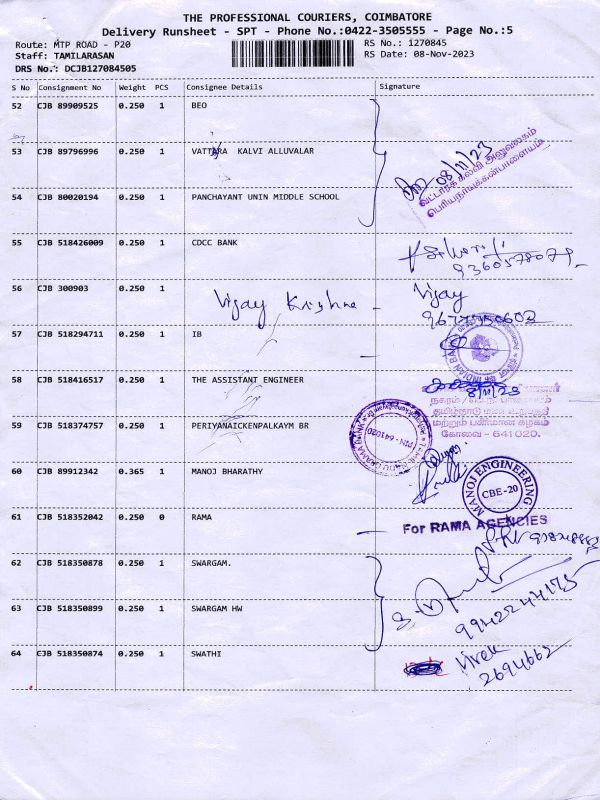 THE PROFESSIONAL COURIERS, COIMBATORE
Delivery Runsheet - SPT - Phone No.:0422-3505555 - Page No.:5
Route: MTP ROAD - P20
RS No.: 1270845
Staff: TAMILARASAN
RS Date: 08-Nov-2023
DRS No.: DCJB127084505
S No Consignment No Weight PCS Consignee Details Signature
52 CJB 89909525 0.250 1 BEO
53 CJB 89796996 0.250 1 VATTARA KALVI ALLUVALAR
08/11/23
வட்டாரக் கல்வி அலுவலகம்
பெரியநாயக்கன்பாளையம்
54 CJB 80020194 0.250 1 PANCHAYANT UNIN MIDDLE SCHOOL
55 CJB 518426009 0.250 1 CDCC BANK
9360578079
56 CJB 300903 0.250 1 Vijay Krishna Vijay
57 CJB 518294711 0.250 1 IB
INDIAN BANK
58 CJB 518416517 0.250 1 THE ASSISTANT ENGINEER
8/11/23
தமிழ்நாடு மின் உற்பத்தி
மற்றும் பகிர்மான கழகம்
கோவை - 641020.
59 CJB 518374757 0.250 1 PERIYANAICKENPALKAYM BR
PIN - 641020
60 CJB 89912342 0.365 1 MANOJ BHARATHY
MANOJ ENGINEERING
CBE-20
61 CJB 518352042 0.250 0 RAMA
For RAMA AGENCIES
62 CJB 518350878 0.250 1 SWARGAM.
63 CJB 518350899 0.250 1 SWARGAM HW
9942244175
64 CJB 518350874 0.250 1 SWATHI
Vivek
2694662